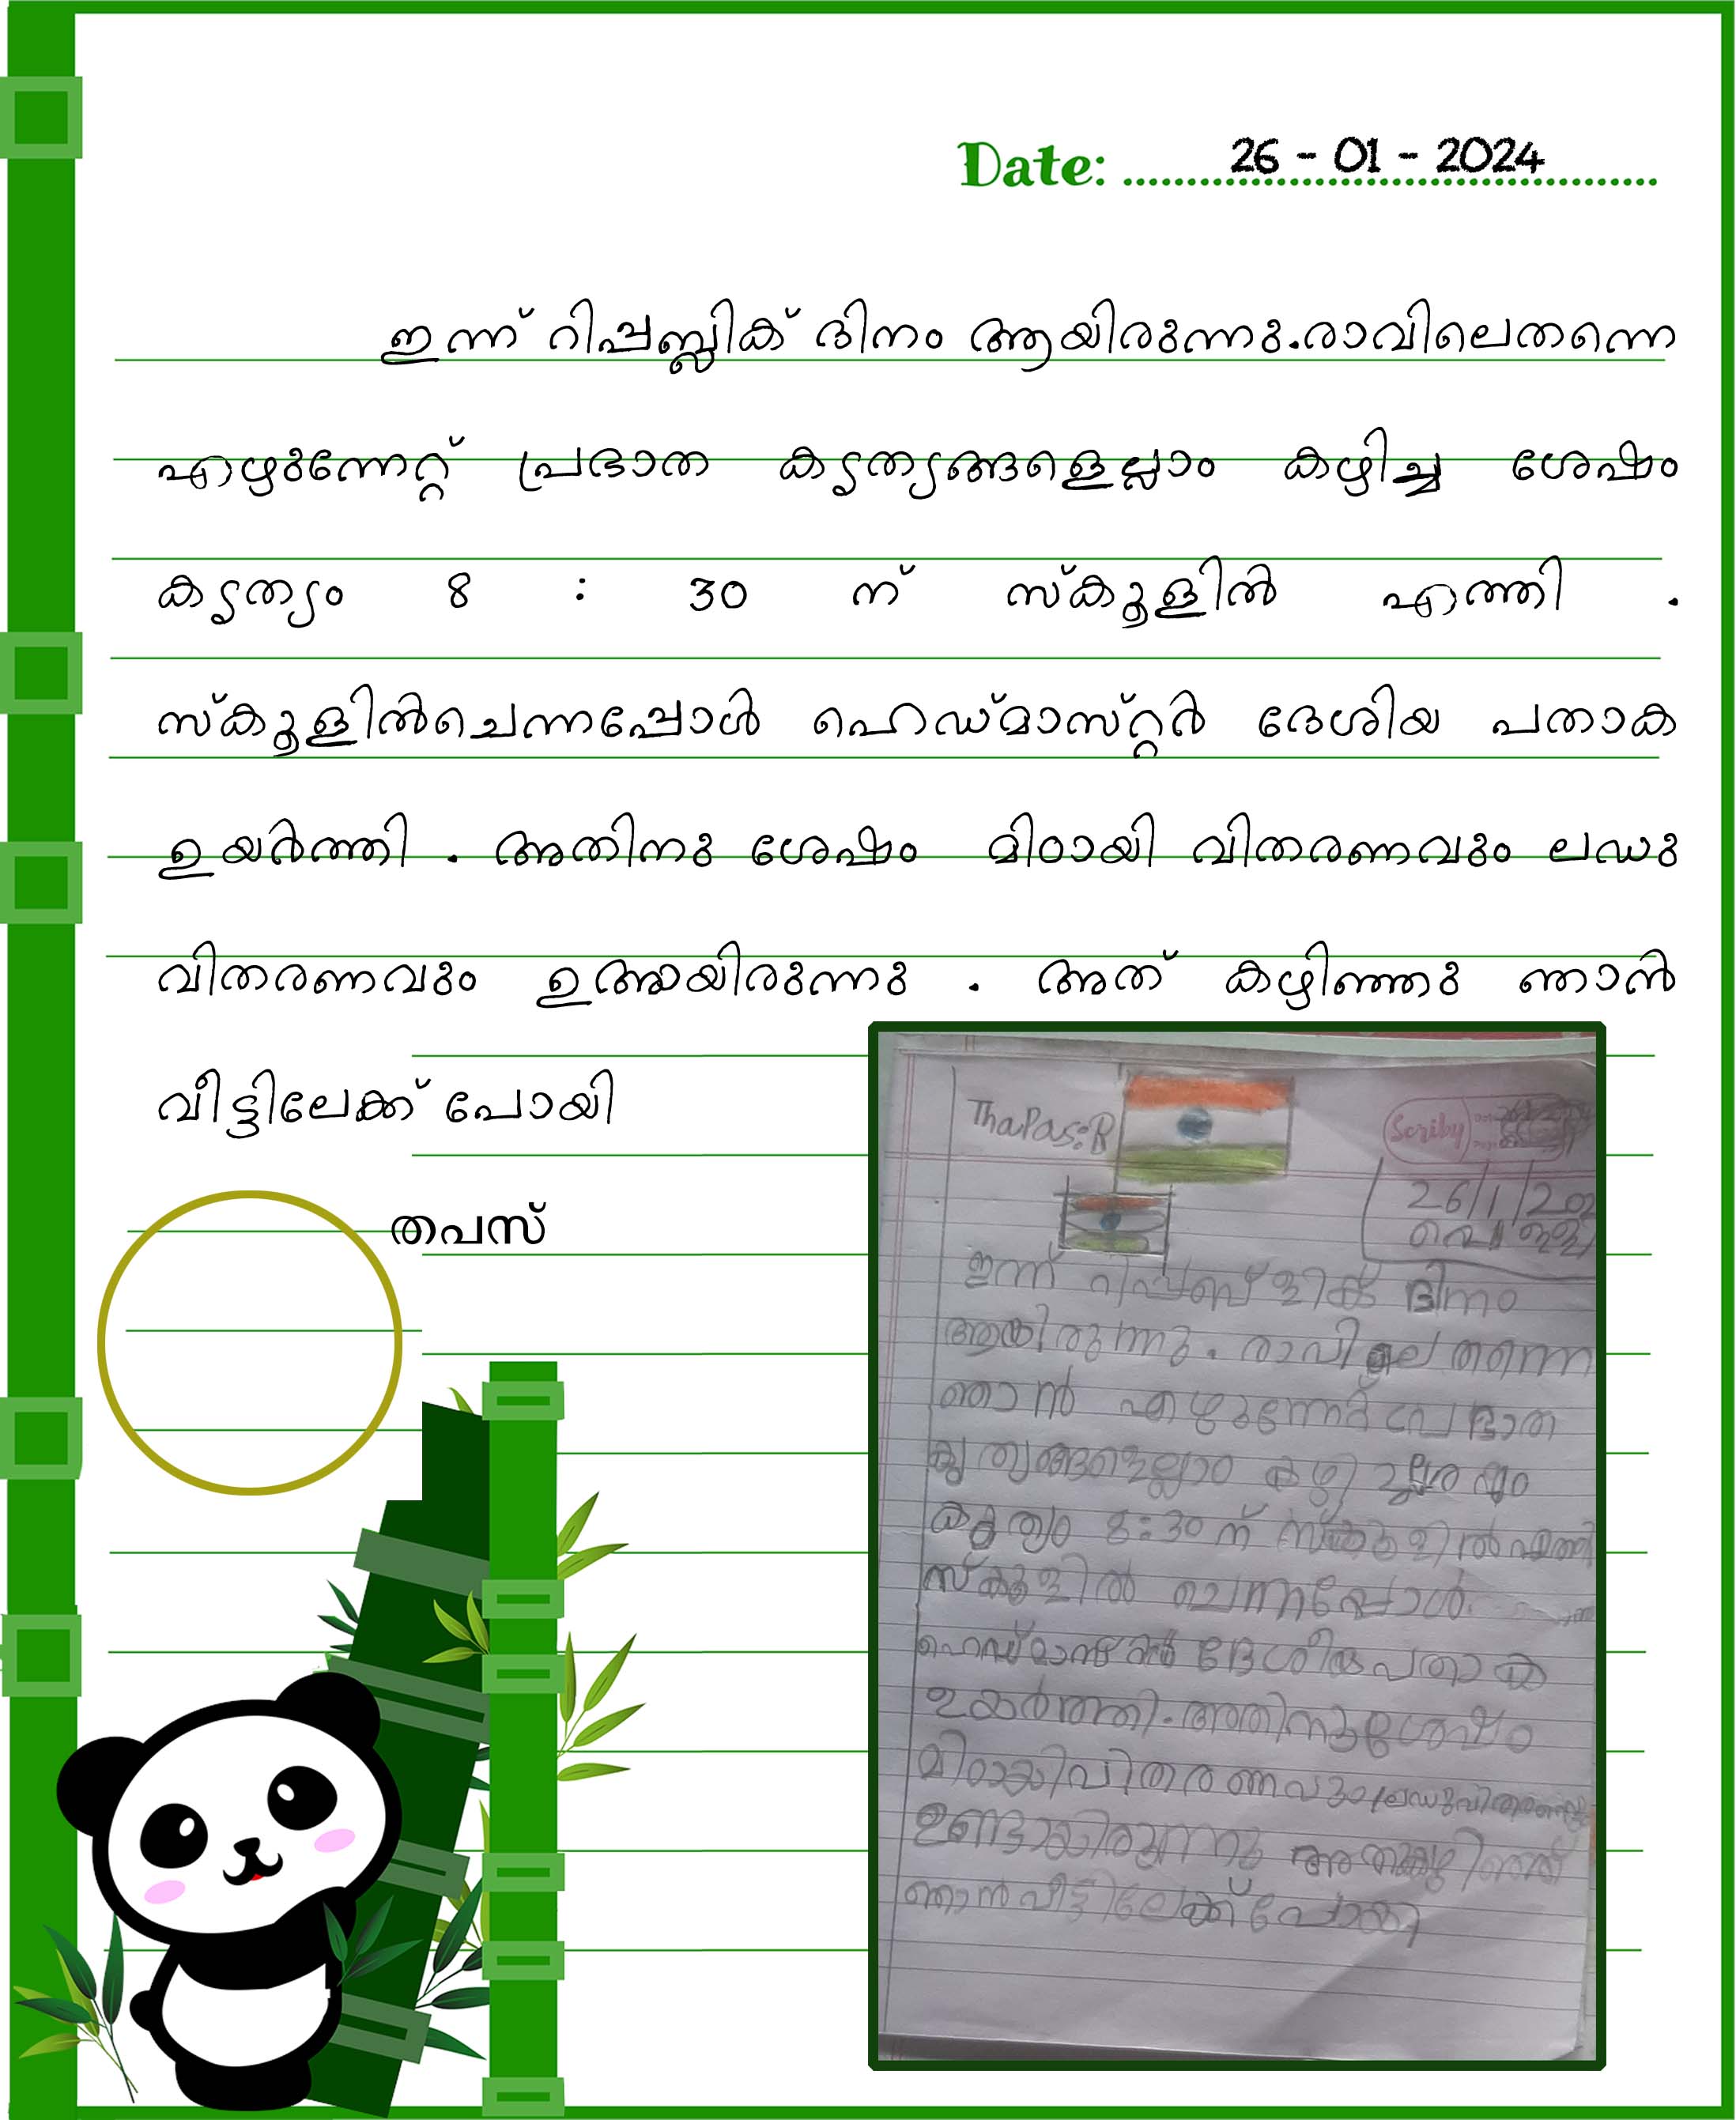 Date: 26 - 01 - 2024
ഇന്ന് റിപ്പബ്ലിക് ദിനം ആയിരുന്നു.രാവിലെതന്നെ
എഴുന്നേറ്റ് പ്രഭാത കൃത്യങ്ങളെല്ലാം കഴിച്ച ശേഷം
കൃത്യം 8 : 30 ന് സ്കൂളിൽ എത്തി .
സ്കൂളിൽചെന്നപ്പോൾ ഹെഡ്മാസ്റ്റർ ദേശിയ പതാക
ഉയർത്തി . അതിനു ശേഷം മിഠായി വിതരണവും ലഡു
വിതരണവും ഉആയിരുന്നു . അത് കഴിഞ്ഞു ഞാൻ
വീട്ടിലേക്ക് പോയി
തപസ്
Thapas:R
Scriby
26/1/202
ഇന്ന് റിപ്പബ്ളിക്ക് ദിനം
ആയിരുന്നു. രാവിലെ തന്നെ
ഞാൻ എഴുന്നേറ്റ്
കൃത്യങ്ങളെല്ലാം
കൃത്യം 8:30 ന് സ്കൂളിൽ എത്തി
സ്കൂളിൽ ചെന്നപ്പോൾ
ദേശീയ പതാക
ഉയർത്തി. അതിനു ശേഷം
മിഠായി വിതരണവും
ഉണ്ടായിരുന്നു
ഞാൻ വീട്ടിലേക്ക് പോയി